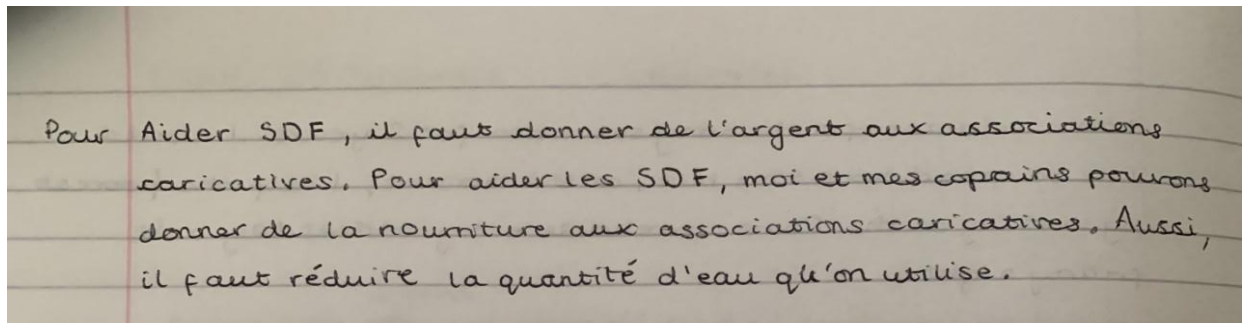 Pour Aider SDF, il faut donner de l'argent aux associations
caricatives. Pour aider les SDF, moi et mes copains pouvons
donner de la nourriture aux associations caricatives. Aussi,
il faut réduire la quantité d'eau qu'on utilise.